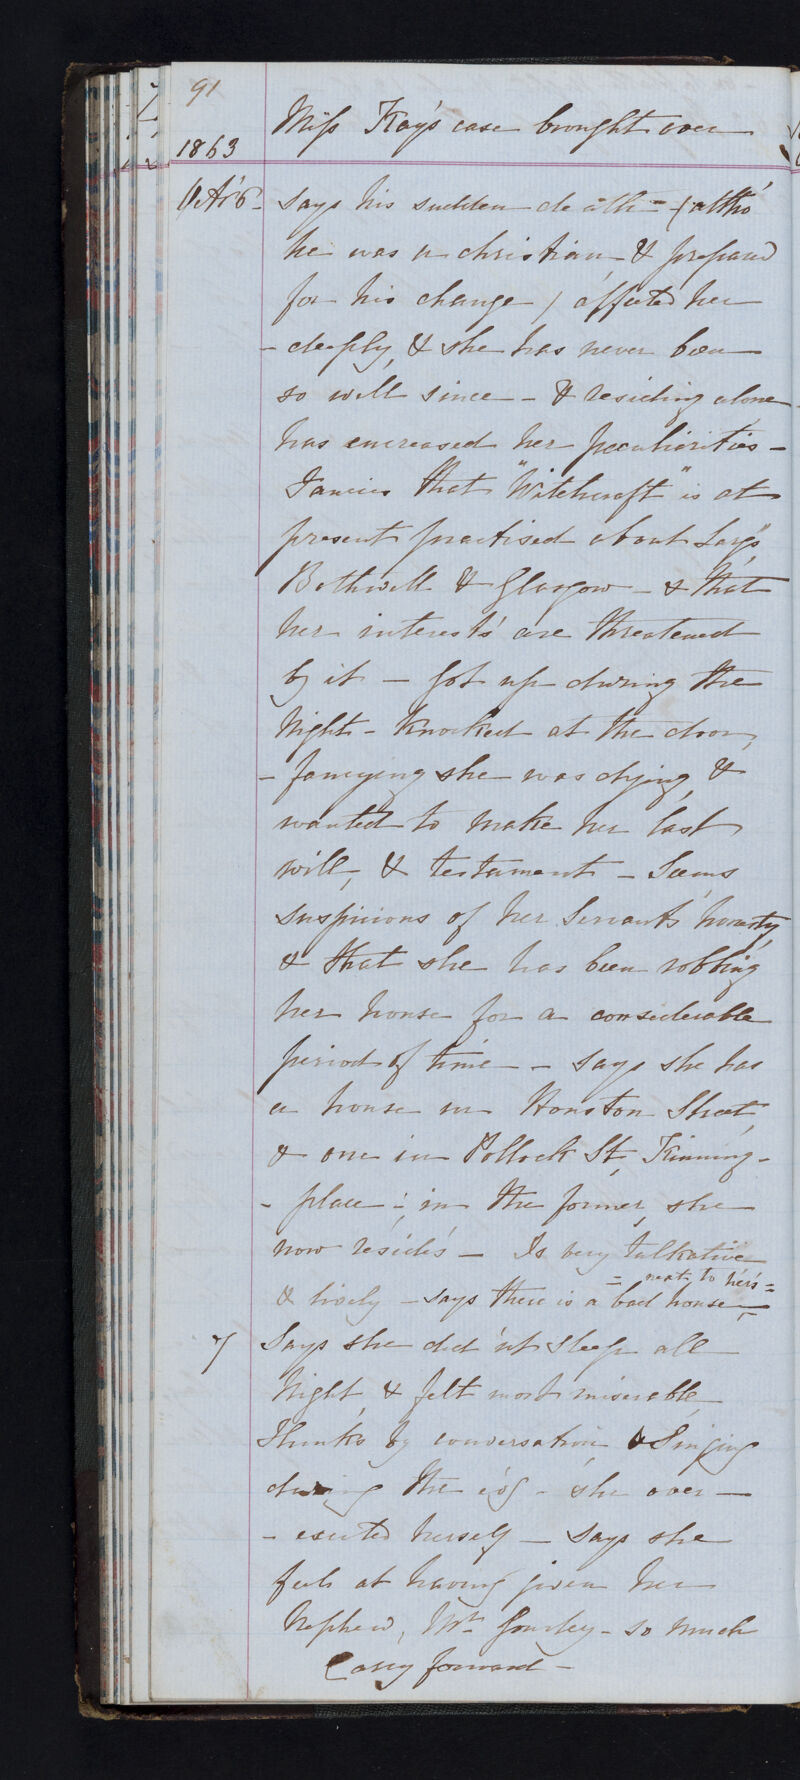 91
Miss Kay's case brought over
1863
Octr 6 - says his sudden death - (altho'
he was a christian & prepared
for his change) affected her
- deeply, & she has never been
so well since - & residing alone
has encreased her peculiarities -
Fancies that "Witchcraft" is at
present practised about Largs,
Bothwell & Glasgow - & that
her interests are threatened
by it - Got up during the
Night - Knocked at the door,
- fancying she was dying, &
wanted to make her last
will, & testament - Seems
suspicious of her Servants' honesty,
& that she has been robbing
her house for a considerable
period of time - says she has
a house in Houston Street,
& one in Pollock St, Kinning-
- place: in the former, she
now resides - Is very talkative
= next to hers =
& lively - says there is a bad house -
7 Says she did'nt sleep all
Night, & felt most miserable
Thinks by conversation & Singing
during the evg - she over -
- exerted herself - says she
feels at having given her
Nephew, Mr. Gourley - so much
Carry forward -